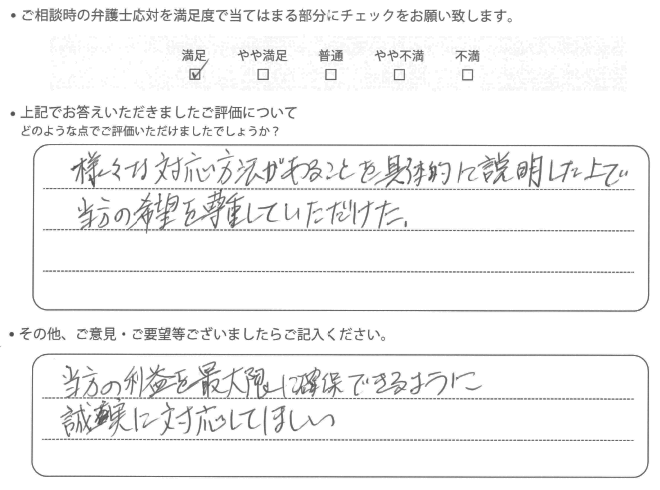 • ご相談時の弁護士応対を満足度で当てはまる部分にチェックをお願い致します。
満足 やや満足 普通 やや不満 不満
☑ □ □ □ □
• 上記でお答えいただきましたご評価について
どのような点でご評価いただけましたでしょうか？
様々な対応方法があることを具体的に説明した上で
当方の希望を尊重していただけた。
• その他、ご意見・ご要望等ございましたらご記入ください。
当方の利益を最大限に確保できるように
誠実に対応してほしい